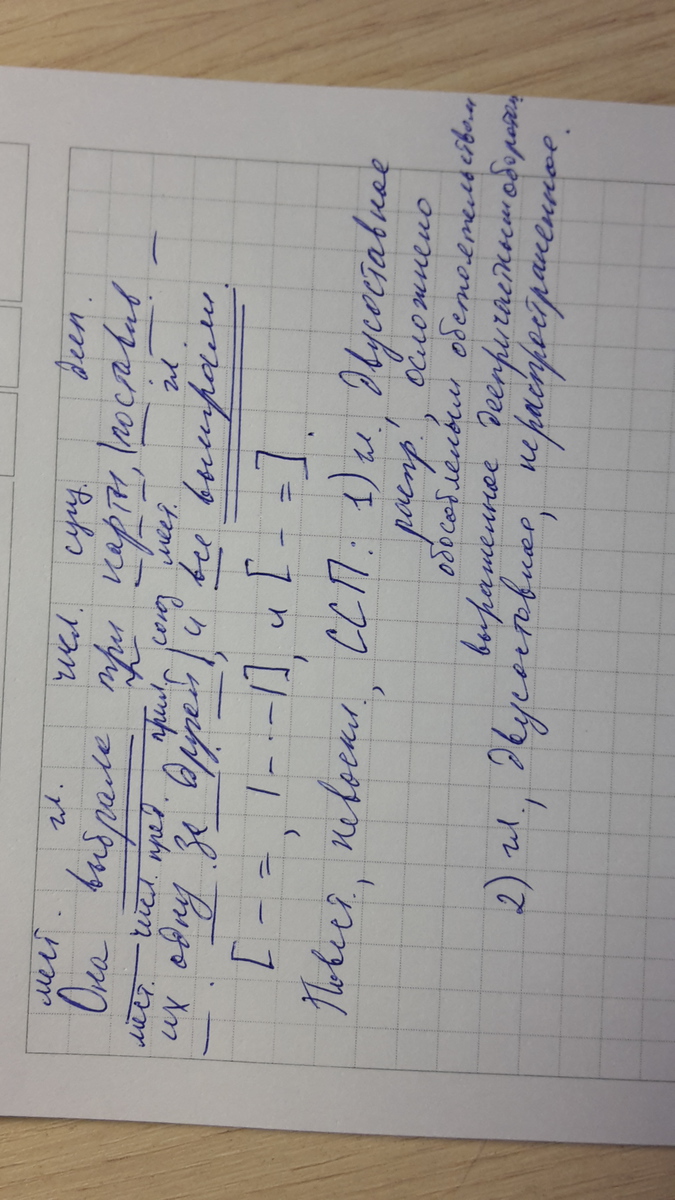 мест. гл. числ. сущ. деп.
Она выбрала три карты, |поставив
мест. числ. пред. прил. союз мест. гл.
их одну за другой|, и все выиграли.
[ – = , |–·–·–|], и [ – = ].
Повест., невоскл., ССП: 1) гл. Двусоставное
распр., осложнено
обособленым обстоятельством
выраженное деепричастным оборотом
2) гл., Двусоставное, нераспространенное.